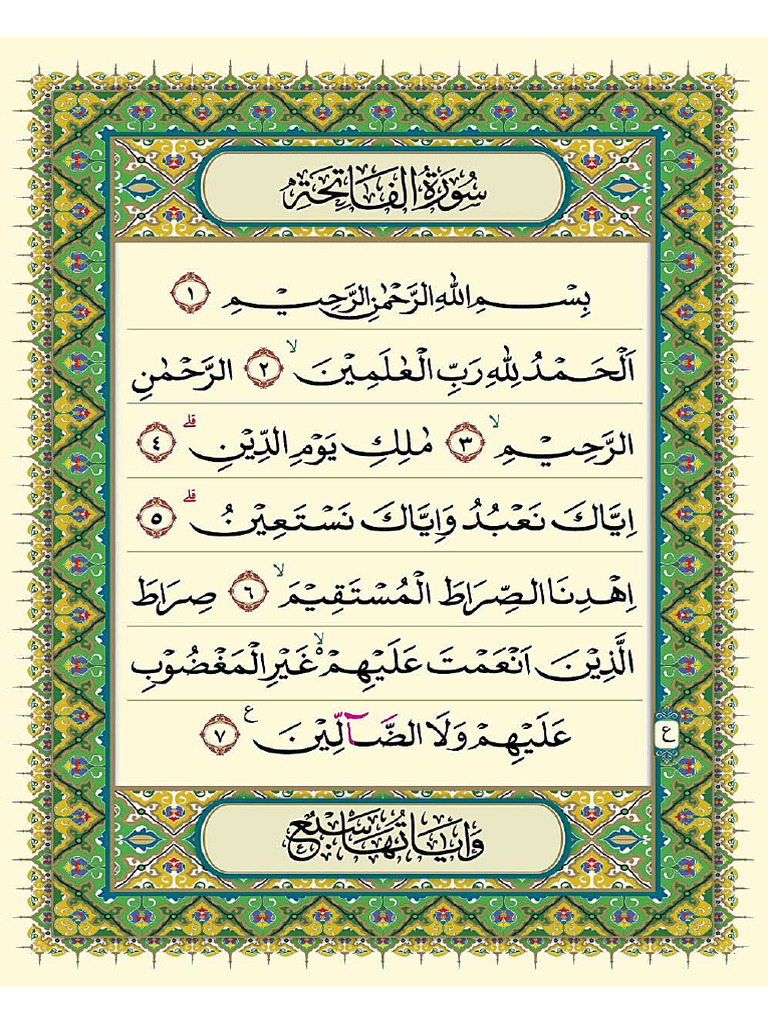 سُورَةُ الْفَاتِحَةِ
بِسْمِ اللهِ الرَّحْمٰنِ الرَّحِيْمِ ١
اَلْحَمْدُ لِلّٰهِ رَبِّ الْعٰلَمِيْنَ ۙ ٢ الرَّحْمٰنِ
الرَّحِيْمِ ۙ ٣ مٰلِكِ يَوْمِ الدِّيْنِ ۗ ٤
اِيَّاكَ نَعْبُدُ وَاِيَّاكَ نَسْتَعِيْنُ ۗ ٥
اِهْدِنَا الصِّرَاطَ الْمُسْتَقِيْمَ ۙ ٦ صِرَاطَ
الَّذِيْنَ اَنْعَمْتَ عَلَيْهِمْ ۙ غَيْرِ الْمَغْضُوْبِ
عَلَيْهِمْ وَلَا الضَّآلِّيْنَ ع ٧
ع
وَاٰيَاتُهَا سَبْعٌ